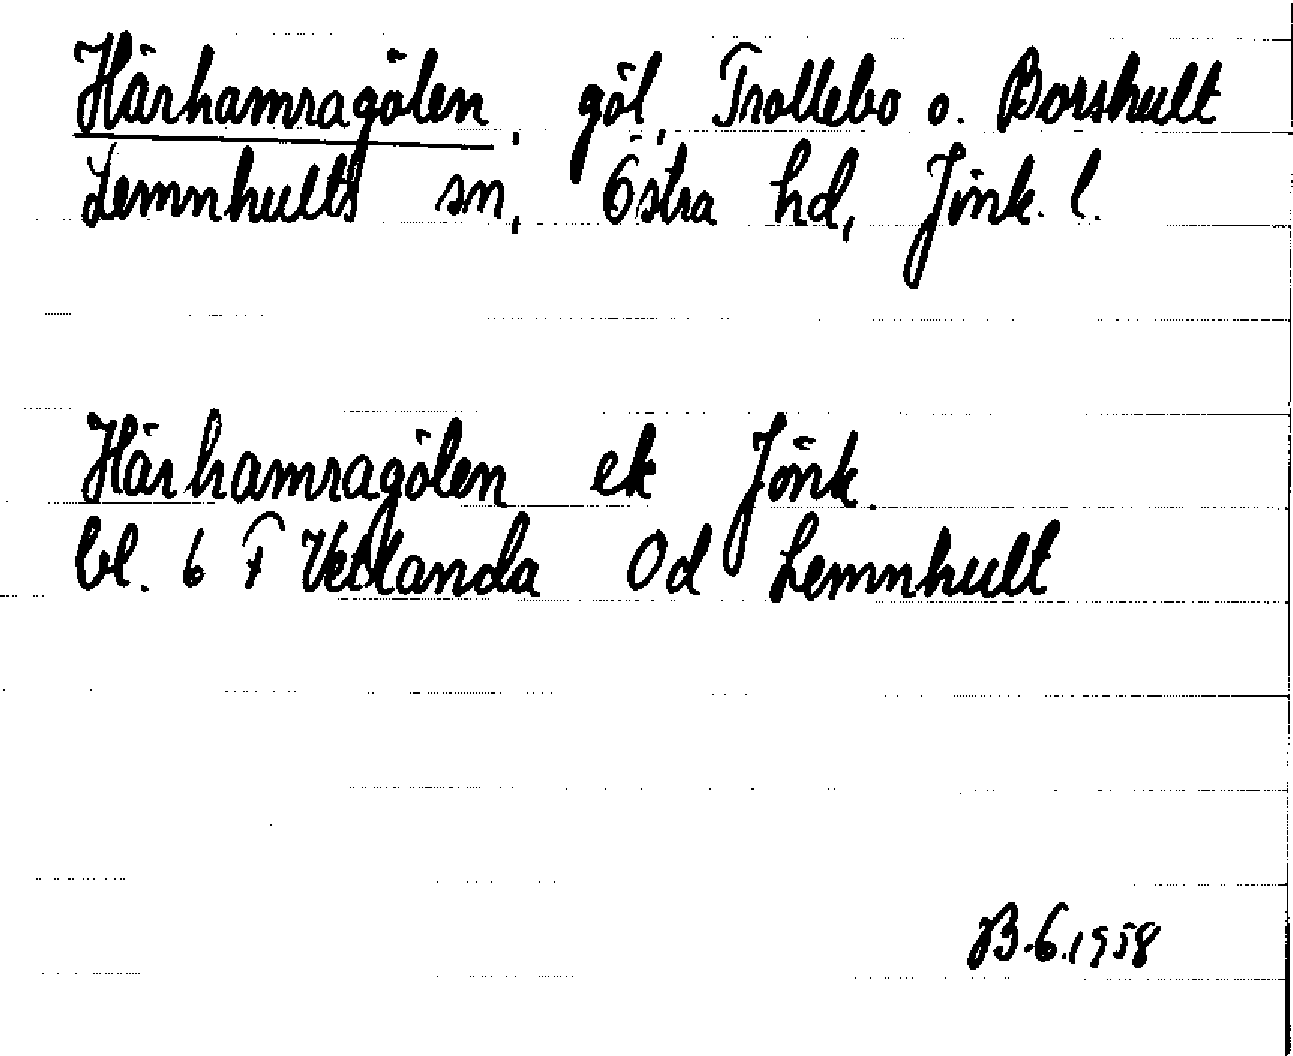 Härhamragölen, göl, Trollebo o. Borshult
Lemnhults sn, Östra hd, Jönk. l.
Härhamragölen ek Jönk.
bl. 6 F Vetlanda Od Lemnhult
B.G.1958